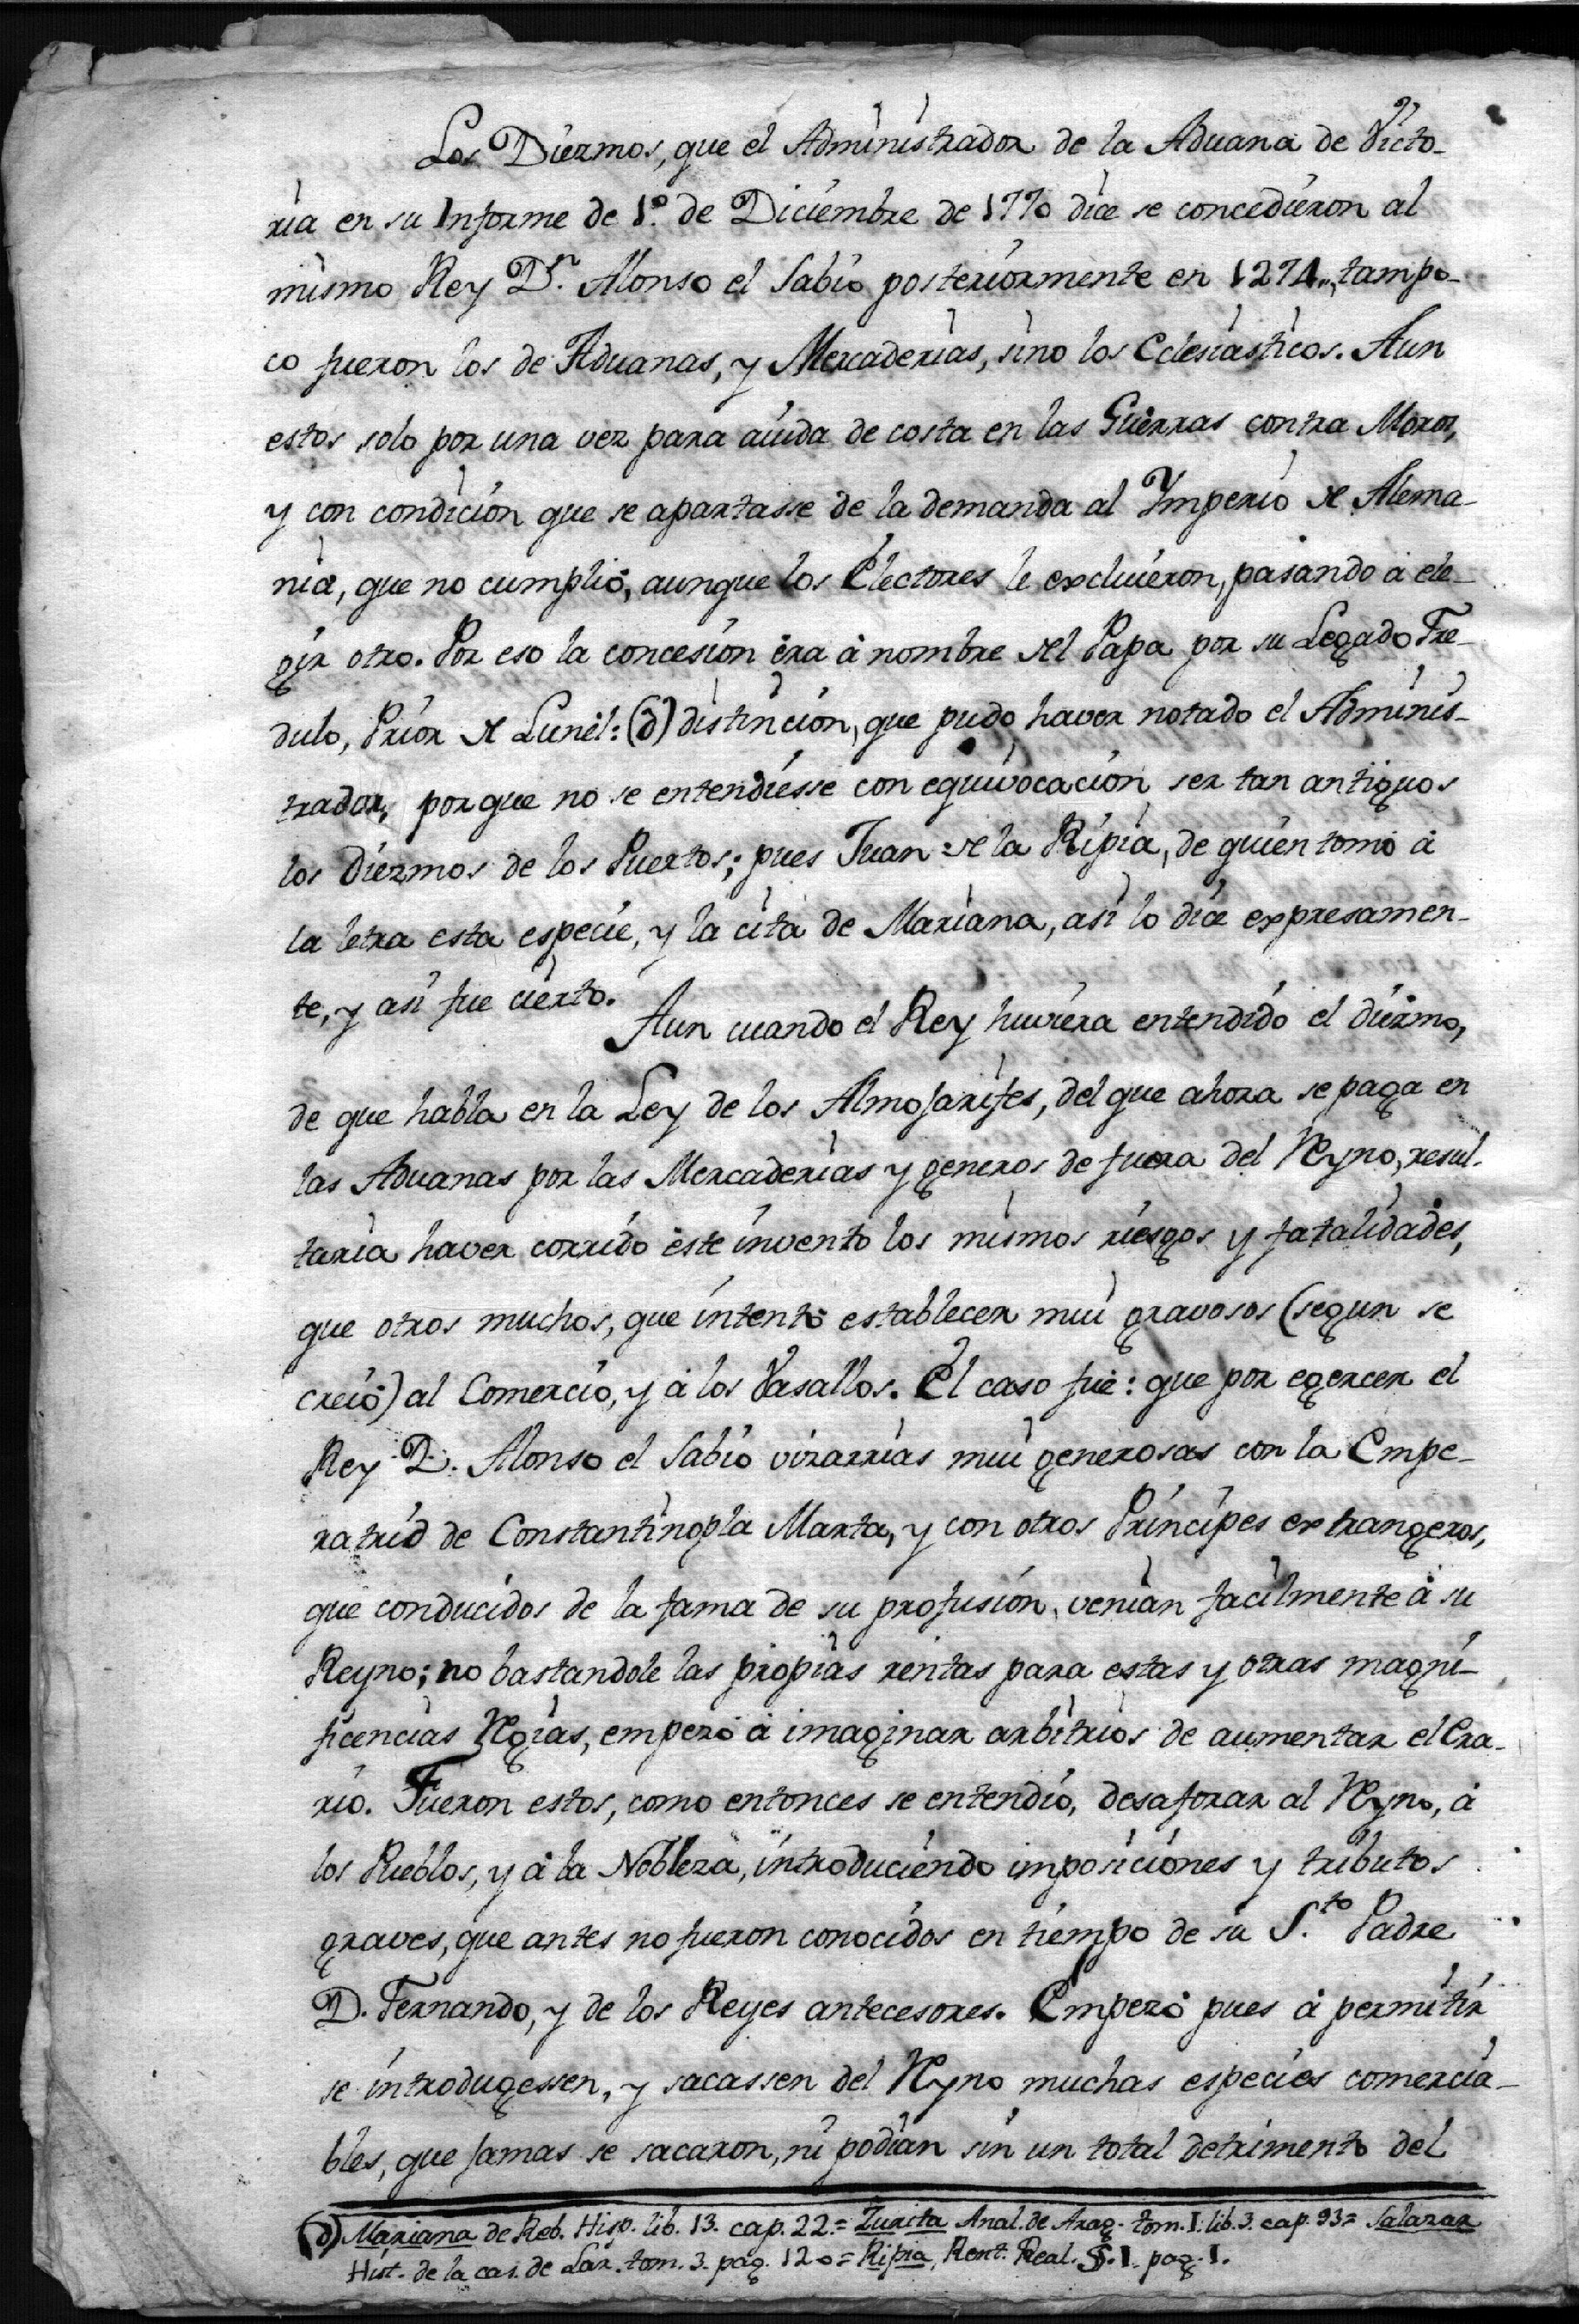 Los Diezmos, que el Administrador de la Aduana de Victo-
ria en su Informe de 1.º de Diciembre de 1770 dice se concedieron al
mismo Rey D.n Alonso el Sabio posteriormente en 1274., tampo-
co fueron los de Aduanas, y Mercaderias, sino los Eclesiasticos. Aun
estos solo por una vez para aiuda de costa en las Guerras contra Moros,
y con condicion que se apartasse de la demanda al Imperio de Alema-
nia, que no cumplió, aunque los Electores le excluieron, pasando à ele-
gir otro. Por eso la concesion èra à nombre del Papa por su Legado Fre-
dulo, Prior de Lunèl: (d) distincion, que pudo haver notado el Adminis-
trador, porque no se entendiesse con equivocacion ser tan antiguos
los Diezmos de los Puertos; pues Juan de la Ripia, de quien tomó à
la letra esta especie, y la cita de Mariana, asi lo dice expresamen-
te, y asi fue cierto.
Aun cuando el Rey huviera entendido el diezmo,
de que habla en la Ley de los Almojarifes, del que ahora se paga en
las Aduanas por las Mercaderias y generos de fuera del Reyno, resul-
taria haver corrido èste invento los mismos riesgos y fatalidades,
que otros muchos, que intentó establecer mui gravosos (segun se
creió) al Comercio, y à los Vasallos. El caso fue: que por egercer el
Rey D. Alonso el Sabio vizarrias mui generosas con la Empe-
ratriz de Constantinopla Marta, y con otros Principes extrangeros,
que conducidos de la fama de su profusion, venian facilmente à su
Reyno; no bastandole las propias rentas para estas y otras magni-
ficencias Regias, empezó à imaginar arbitrios de aumentar el Era-
rio. Fueron estos, como entonces se entendió, desaforar al Reyno, à
los Pueblos, y à la Nobleza, introduciendo imposiciones y tributos
graves, que antes no fueron conocidos en tiempo de su S.to Padre
D. Fernando, y de los Reyes antecesores. Empezó pues à permitir
se introdugessen, y sacassen del Reyno muchas especies comercia-
bles, que jamas se sacaron, ni podian sin un total detrimento del
(d) Mariana de Reb. Hisp. lib. 13. cap. 22.= Zurita Anal. de Arag. tom. I. lib. 3. cap. 93= Salazar
Hist. de la cas. de Lar. tom. 3. pag. 120= Ripia, Rent. Real. §. I. pag. 1.